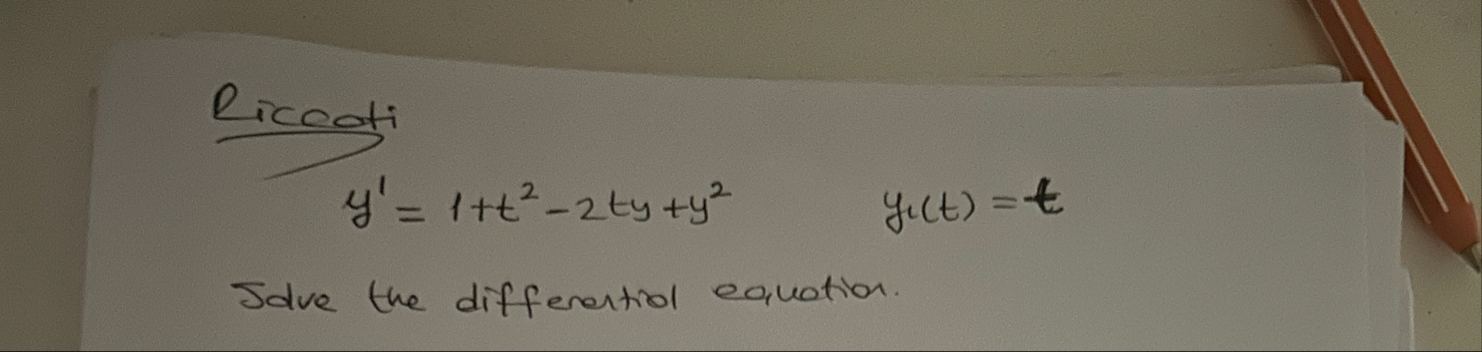 Riccati
y' = 1+t² - 2ty + y² y₁(t) = t
Solve the differential equation.